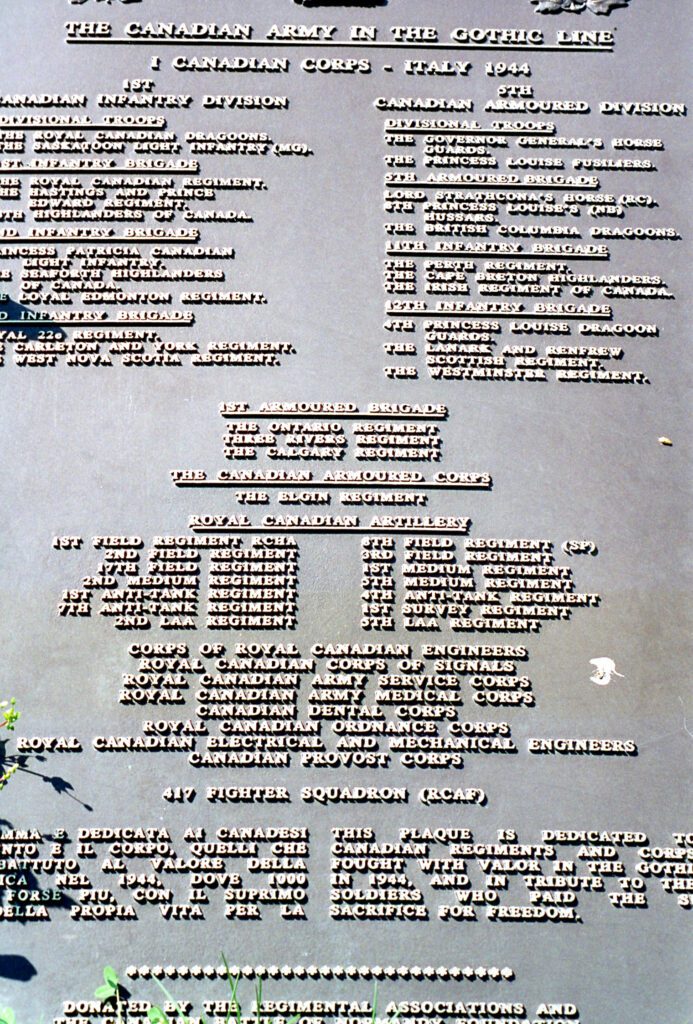 THE CANADIAN ARMY IN THE GOTHIC LINE
I CANADIAN CORPS - ITALY 1944
1ST
ANADIAN INFANTRY DIVISION
DIVISIONAL TROOPS
HE ROYAL CANADIAN DRAGOONS.
HE SASKATOON LIGHT INFANTRY (MG).
ST INFANTRY BRIGADE
HE ROYAL CANADIAN REGIMENT.
HE HASTINGS AND PRINCE
EDWARD REGIMENT.
TH HIGHLANDERS OF CANADA.
ND INFANTRY BRIGADE
INCESS PATRICIA CANADIAN
LIGHT INFANTRY.
E SEAFORTH HIGHLANDERS
OF CANADA.
E LOYAL EDMONTON REGIMENT.
D INFANTRY BRIGADE
YAL 22e REGIMENT.
CARLETON AND YORK REGIMENT.
WEST NOVA SCOTIA REGIMENT.
5TH
CANADIAN ARMOURED DIVISION
DIVISIONAL TROOPS
THE GOVERNOR GENERAL'S HORSE
GUARDS.
THE PRINCESS LOUISE FUSILIERS.
5TH ARMOURED BRIGADE
LORD STRATHCONA'S HORSE (RC).
8TH PRINCESS LOUISE'S (NB)
HUSSARS.
THE BRITISH COLUMBIA DRAGOONS.
11TH INFANTRY BRIGADE
THE PERTH REGIMENT.
THE CAPE BRETON HIGHLANDERS.
THE IRISH REGIMENT OF CANADA.
12TH INFANTRY BRIGADE
4TH PRINCESS LOUISE DRAGOON
GUARDS.
THE LANARK AND RENFREW
SCOTTISH REGIMENT.
THE WESTMINSTER REGIMENT.
1ST ARMOURED BRIGADE
THE ONTARIO REGIMENT
THREE RIVERS REGIMENT
THE CALGARY REGIMENT
THE CANADIAN ARMOURED CORPS
THE ELGIN REGIMENT
ROYAL CANADIAN ARTILLERY
1ST FIELD REGIMENT RCHA
2ND FIELD REGIMENT
17TH FIELD REGIMENT
2ND MEDIUM REGIMENT
1ST ANTI-TANK REGIMENT
7TH ANTI-TANK REGIMENT
2ND LAA REGIMENT
8TH FIELD REGIMENT (SP)
3RD FIELD REGIMENT
1ST MEDIUM REGIMENT
5TH MEDIUM REGIMENT
4TH ANTI-TANK REGIMENT
1ST SURVEY REGIMENT
5TH LAA REGIMENT
CORPS OF ROYAL CANADIAN ENGINEERS
ROYAL CANADIAN CORPS OF SIGNALS
ROYAL CANADIAN ARMY SERVICE CORPS
ROYAL CANADIAN ARMY MEDICAL CORPS
CANADIAN DENTAL CORPS
ROYAL CANADIAN ORDNANCE CORPS
ROYAL CANADIAN ELECTRICAL AND MECHANICAL ENGINEERS
CANADIAN PROVOST CORPS
417 FIGHTER SQUADRON (RCAF)
MMA E DEDICATA AI CANADESI
NTO E IL CORPO, QUELLI CHE
BATTUTO AL VALORE DELLA
ICA NEL 1944, DOVE 1000
FORSE PIU, CON IL SUPRIMO
DELLA PROPIA VITA PER LA
THIS PLAQUE IS DEDICATED TO
CANADIAN REGIMENTS AND CORPS
FOUGHT WITH VALOR IN THE GOTHI
IN 1944, AND IN TRIBUTE TO THE
SOLDIERS WHO PAID THE SU
SACRIFICE FOR FREEDOM.
DONATED BY THE REGIMENTAL ASSOCIATIONS AND
THE CANADIAN BATTLE OF NORMANDY FOUNDATION